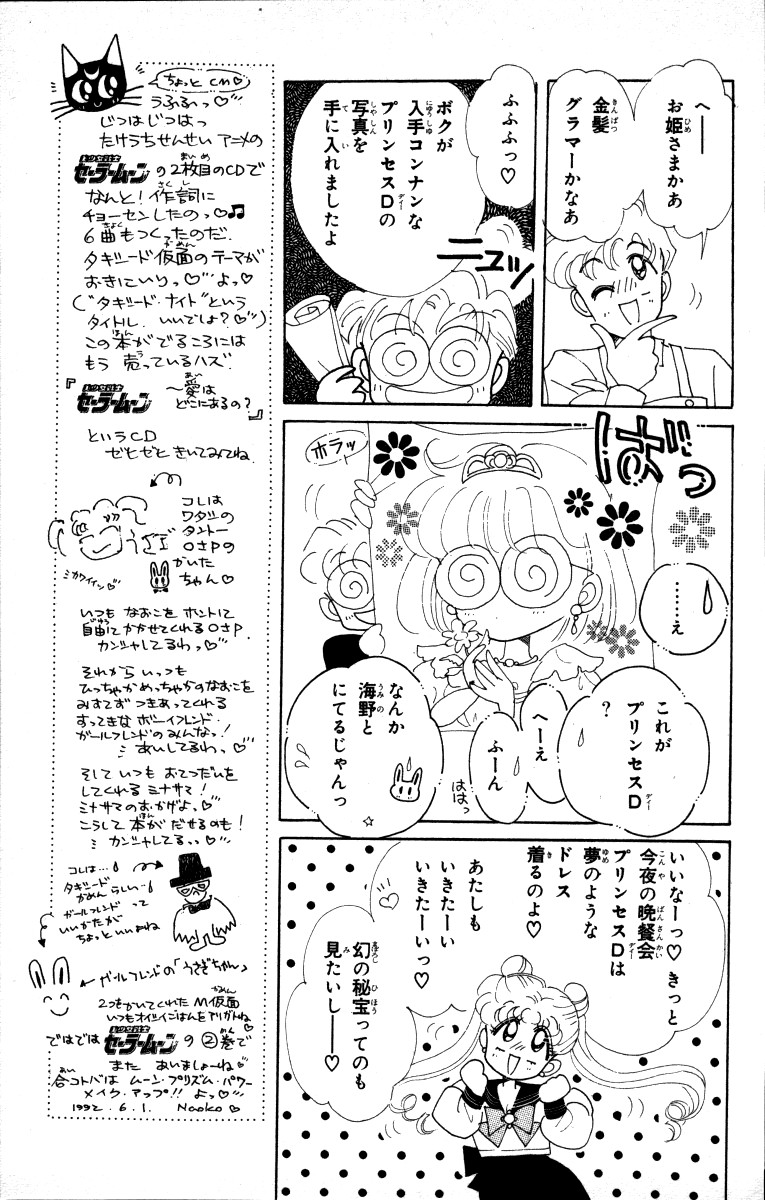 へ──
お姫さまかあ
金髪
グラマーかなあ
ふふふっ♡
ボクが
入手コンナンな
プリンセスDの
写真を
手に入れましたよ
ニュッ
ばっ
ホラッ
……え
これが
プリンセスD
?
へーえ
ふーん
ははっ
なんか
海野と
にてるじゃんっ
☆
いいなーっ♡きっと
今夜の晩餐会
プリンセスDは
夢のような
ドレス
着るのよ♡
あたしも
いきたーい
いきたーいっ♡
幻の秘宝ってのも
見たいし──♡
ちょっとCM♡
うふふへっ♡
じつはじつはっ
たけうちせんせい アニメの
美少女戦士
セーラームーンの2枚目のCDで
なんと!作詞に
チョーセンしたのっ♡♫
6曲もつくったのだ.
タキシード仮面のテーマが
おきにいりっ♡よっ♡
("タキシード・ナイト"という
タイトル.いいでしょ?♡)
この本がでるころには
もう 売っているハズ.
『美少女戦士
セーラームーン 〜愛は
どこにあるの?』
というCD
ぜひぜひ きいてみてね.
コレは
ワタシの
タントー
OさPの
かいた
ちゃん♡
うさぎ
ミカワイイン♡
いつも なおこを ホントに
自由にかかせてくれるOさP.
カンシャしてるわっ♡
それから いっつも
ひっちゃかめっちゃかのなおこを
みすてず つきあってくれる
すってきな ボーイフレンド・
ガールフレンドのみんなっ!
あいしてるわっ♡
そして いつも おてつだいを
してくれる ミナサマ!
ミナサマの おかげよ♡
こうして 本が だせるのも!
カンシャしてるっ♡
コレは…
タキシード
かめん らしい…
ガールフレンド って
いいかたが
ちょっといいわね
ガールフレンドの「うさぎちゃん」
2つをかいてくれた M仮面
いつもオイシイごはんをアリガトね♡
ではでは 美少女戦士
セーラームーン の ②巻で
また あいましょーね♡
合コトバは ムーン・プリズム・パワー
メイク・アップ!! よっ♡
1992.6.1. Naoko♡